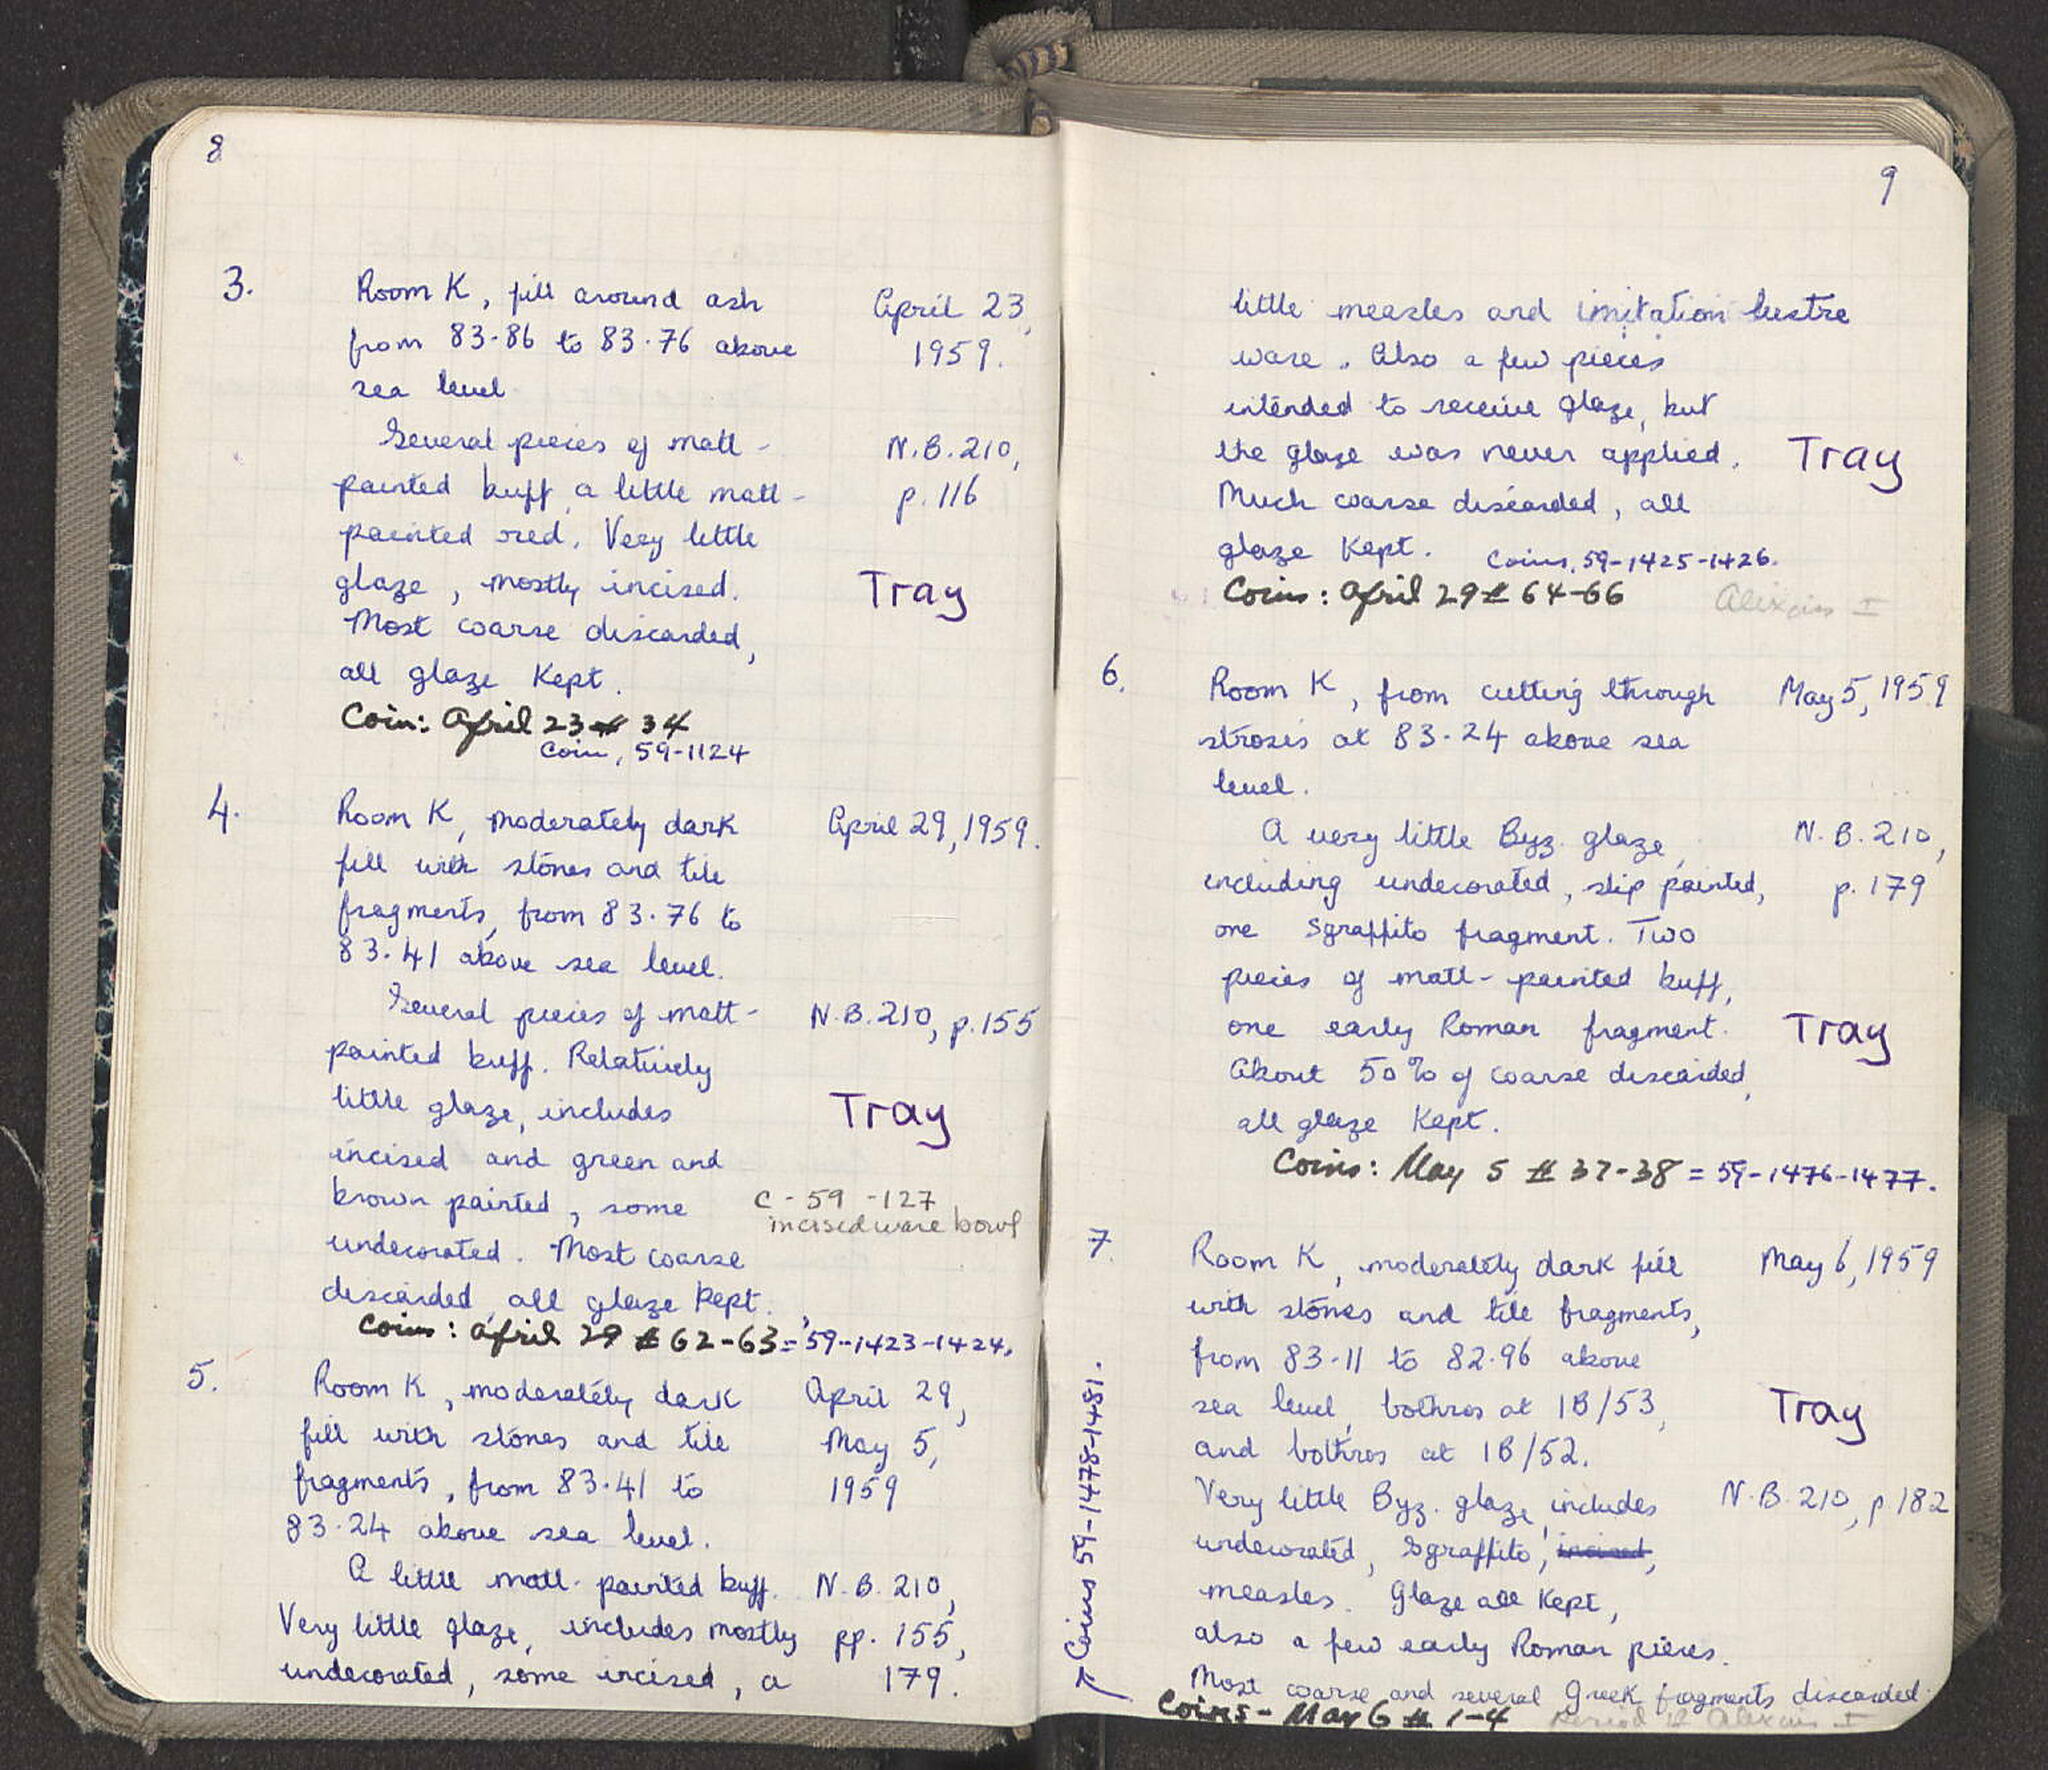 8
3. Room K, fill around ash April 23,
from 83.86 to 83.76 above 1959.
sea level
Several pieces of matt- N.B. 210,
painted buff, a little matt- p. 116
painted red. Very little
glaze, mostly incised. Tray
Most coarse discarded,
all glaze kept.
Coin: April 23 # 34
Coin, 59-1124
4. Room K, moderately dark April 29, 1959.
fill with stones and tile
fragments, from 83.76 to
83.41 above sea level.
Several pieces of matt- N.B. 210, p. 155
painted buff. Relatively
little glaze, includes Tray
incised and green and
brown painted, some C-59-127
undecorated. Most coarse incised ware bowl
discarded, all glaze kept.
Coins: April 29 # 62-63 = 59-1423-1424.
5. Room K, moderately dark April 29,
fill with stones and tile May 5,
fragments, from 83.41 to 1959
83.24 above sea level.
A little matt-painted buff. N.B. 210,
Very little glaze, includes mostly pp. 155,
undecorated, some incised, a 179.
9
little measles and imitation lustre
ware. Also a few pieces
intended to receive glaze, but
the glaze was never applied. Tray
Much coarse discarded, all
glaze kept. Coins, 59-1425-1426.
Coins: April 29 # 64-66 Alexius I
6. Room K, from cutting through May 5, 1959
strosis at 83.24 above sea
level.
A very little Byz. glaze, N.B. 210,
including undecorated, slip painted, p. 179
one sgraffito fragment. Two
pieces of matt-painted buff,
one early Roman fragment. Tray
About 50% of coarse discarded,
all glaze kept.
Coins: May 5 # 37-38 = 59-1476-1477.
7. Room K, moderately dark fill May 6, 1959
with stones and tile fragments,
from 83.11 to 82.96 above
sea level, bothros at 1B/53, Tray
and bothros at 1B/52.
Very little Byz. glaze, includes N.B. 210, p 182
undecorated, Sgraffito, incised,
measles. Glaze all kept,
also a few early Roman pieces.
Most coarse and several Greek fragments discarded.
Coins - May 6 # 1-4 Period of Alexius I
↗ Coins 59-1478-1481.